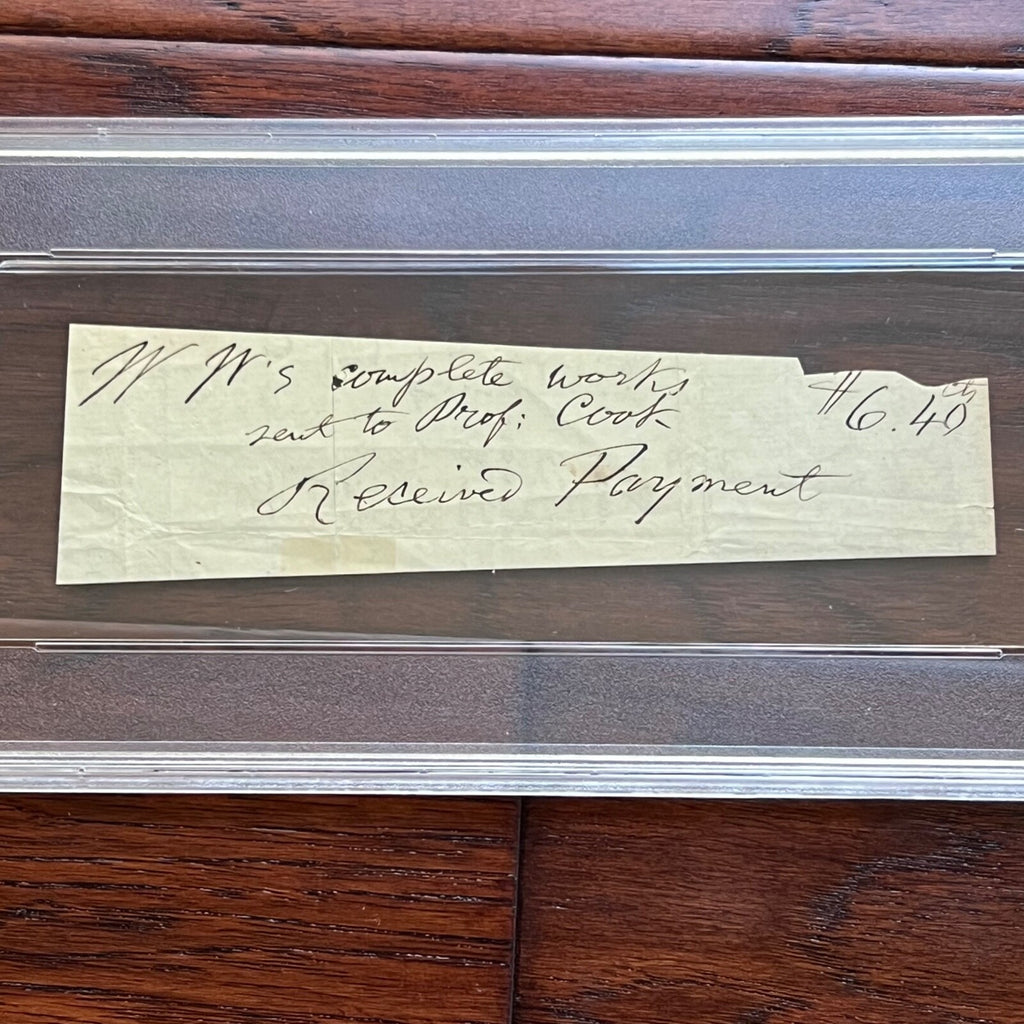 W W's complete works $6.40
sent to Prof: Cook
Received Payment